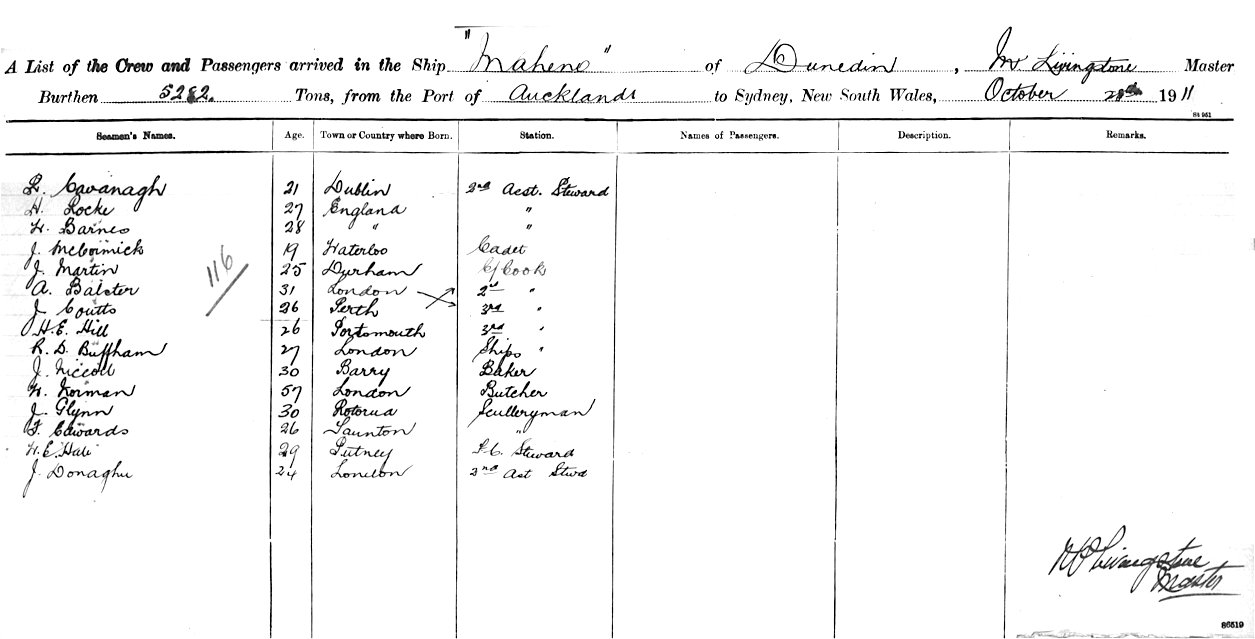 A List of the Crew and Passengers arrived in the Ship "Maheno" of Dunedin, Mr Livingstone Master
Burthen 5282. Tons, from the Port of Auckland to Sydney, New South Wales, October 1911
St 951
Seamen's Names. Age. Town or Country where Born. Station. Names of Passengers. Description. Remarks.
Cavanagh 21 Dublin 2nd Asst. Steward
H. Locke 27 England "
H. Barnes 28 " "
J. McCormick 19 Waterloo Cadet
J. Martin 25 Durham C/Cook
A. Balster 31 London 2nd "
J. Coutts 26 Perth 3rd "
H.E. Hill 26 Portsmouth 3rd "
R. D. Buffham 27 London Ships "
J. Niccoll 30 Barry Baker
W. Norman 57 London Butcher
J. Glynn 30 Rotorua Sculleryman
F. Edwards 26 Taunton "
W.E. Hale 29 Putney F.C. Steward
J. Donaghue 24 London Ast Stwd
116
Livingstone
Master
86519